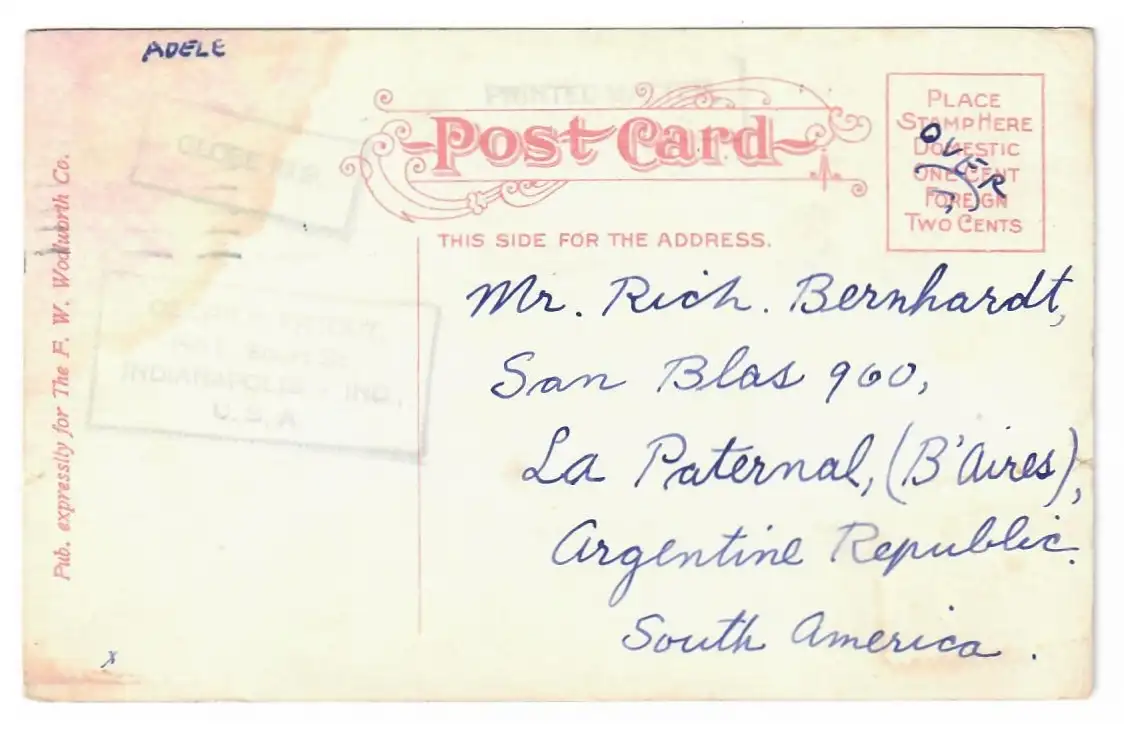 ADELE
PRINTED MATTER
Post Card
PLACE
STAMP HERE
DOMESTIC
ONE CENT
FOREIGN
TWO CENTS
OVER
THIS SIDE FOR THE ADDRESS.
Pub. expresslly for The F. W. Woolworth Co.
INDIANAPOLIS - IND.,
U.S.A.
Mr. Rich. Bernhardt,
San Blas 900,
La Paternal, (B'Aires),
Argentine Republic.
South America.
X